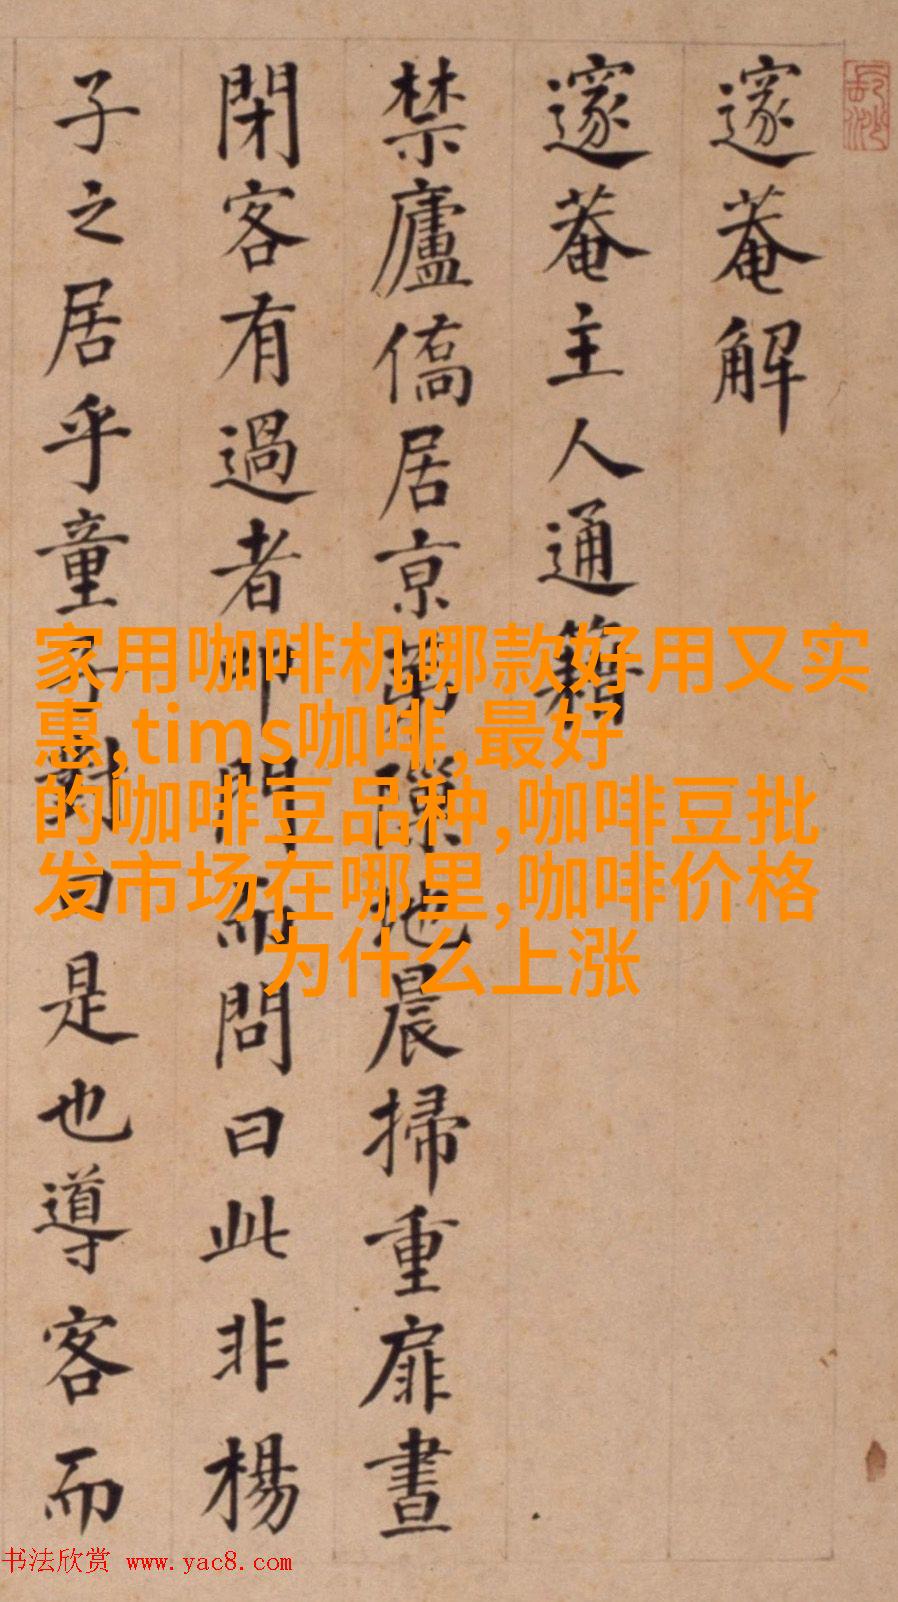 邃菴解
邃菴主人通籍
禁廬僑居京萬隙地晨掃重扉晝
閉客有過者叩門而問曰此非楊
子之居乎童子對曰是也導客而
家用咖啡机哪款好用又实
惠,tims咖啡,最好
的咖啡豆品种,咖啡豆批
发市场在哪里,咖啡价格
为什么上涨
书法欣赏 www.yac8.com